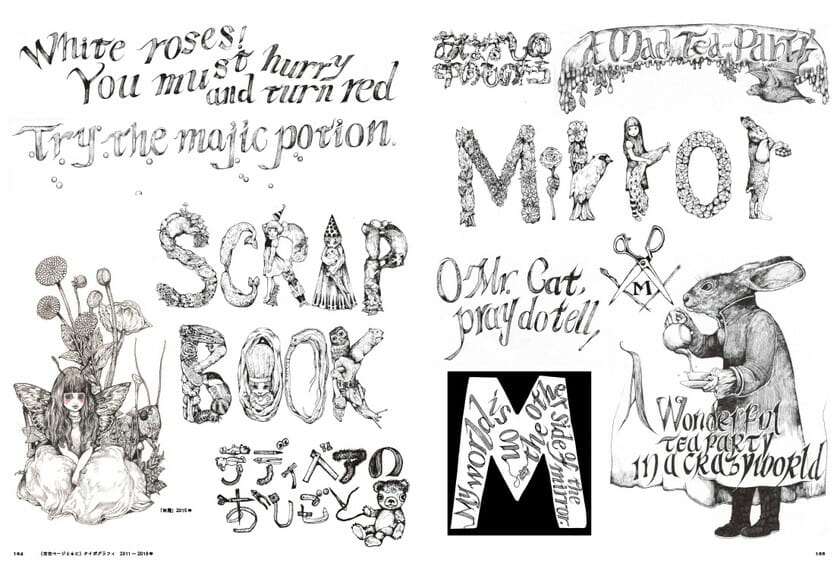 White roses!
You must hurry
and turn red
Try the majic potion.
SCRAP
BOOK
テディベアの
おしごと
タイポグラフィ
A Mad Tea-Party
Mirror
O Mr. Cat,
pray do tell,
M
My World is on the other side of the mirror.
A Wonderful
tea party
in a crazy world